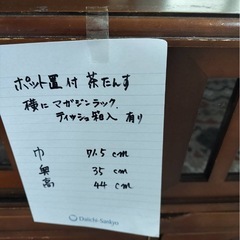 ポット置付 茶たんす
横に マガジンラック、
ティッシュ箱入 有り
巾 71.5 cm
奥 35 cm
高 44 cm
Daiichi-Sankyo